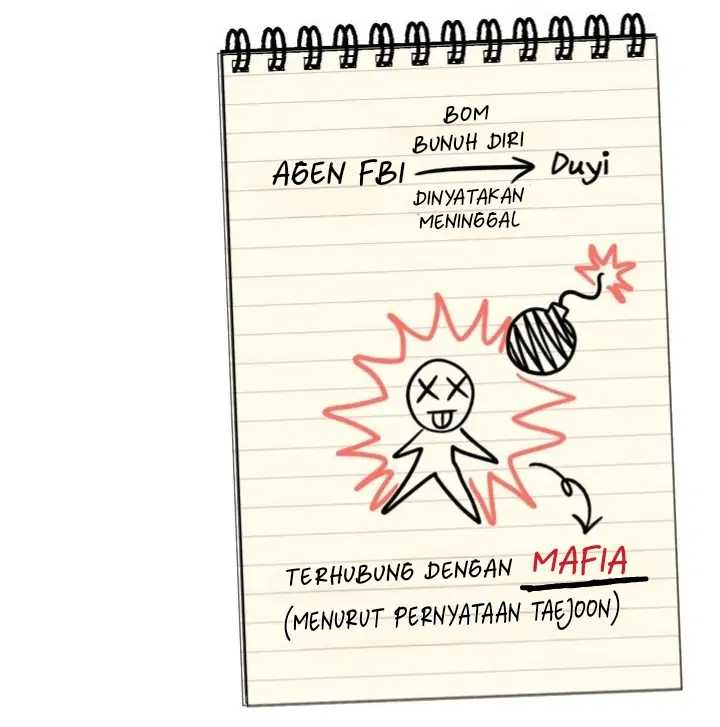 BOM
BUNUH DIRI
AGEN FBI → Duyi
DINYATAKAN
MENINGGAL
TERHUBUNG DENGAN MAFIA
(MENURUT PERNYATAAN TAEJOON)